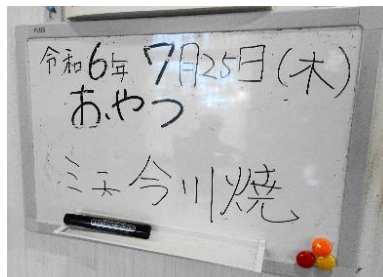 PLUS
令和6年 7月25日(木)
おやつ
ミニ今川焼